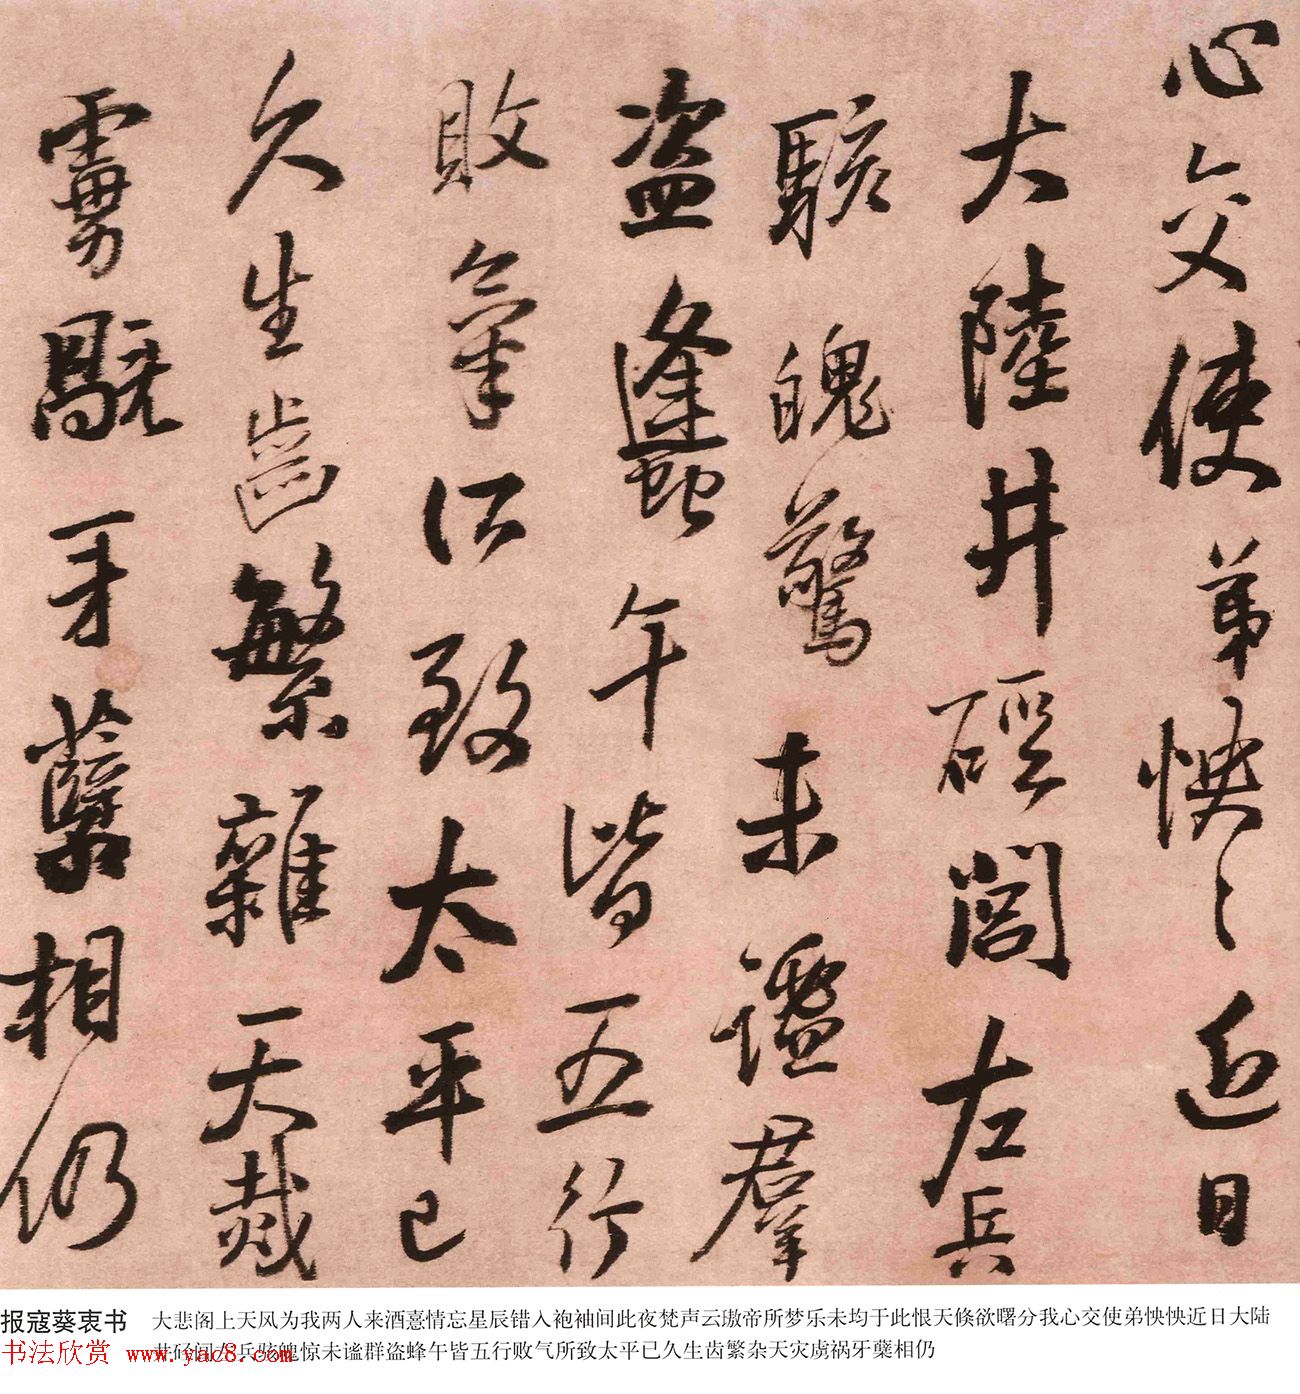 心交使弟怏〻近日
大陸井硜闾左兵
駭魄驚未謐群
盗蠭午皆五行
敗氣所致太平已
久生齒繁雜天烖
雩旤牙蘖相仍
报寇葵衷书
大悲阁上天风为我两人来酒憙情忘星辰错入袍袖间此夜梵声云璈帝所梦乐未均于此恨天倏欲曙分我心交使弟怏怏近日大陆
井硁闾左兵骇魄惊未谧群盗蜂午皆五行败气所致太平已久生齿繁杂天灾虏祸牙蘖相仍
书法欣赏 www.yac8.com